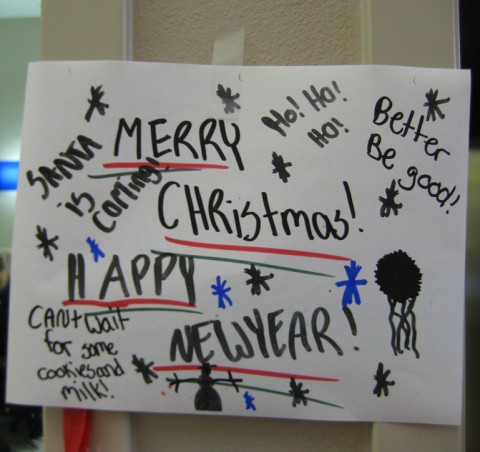 MERRY
CHRistmas!
HAPPY
NEWYEAR!
SANTA
is
Coming!
Ho! Ho!
Ho!
Better
Be good!
CAN't wait
for some
cookies and
milk!